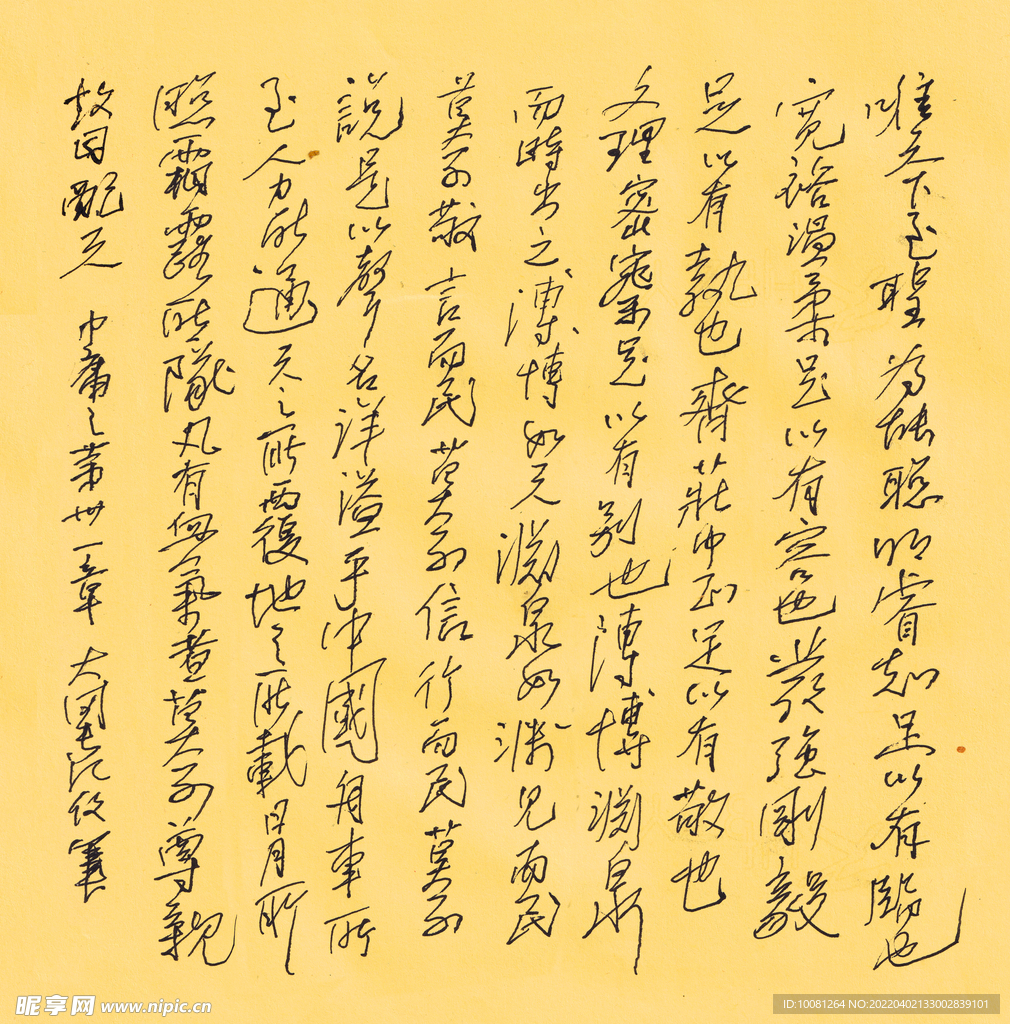 唯天下至聖為能聰明睿知足以有臨也
寬裕溫柔足以有容也發強剛毅
足以有執也齊莊中正足以有敬也
文理密察足以有別也溥博淵泉
而時出之溥博如天淵泉如淵見而民
莫不敬言而民莫不信行而民莫不
說是以聲名洋溢乎中國舟車所
至人力所通天之所覆地之所載日月所
照霜露所隊凡有血氣者莫不尊親
故曰配天 中庸之第卅一章
昵享网 www.nipic.cn
ID:10081264 NO:20220402133002839101